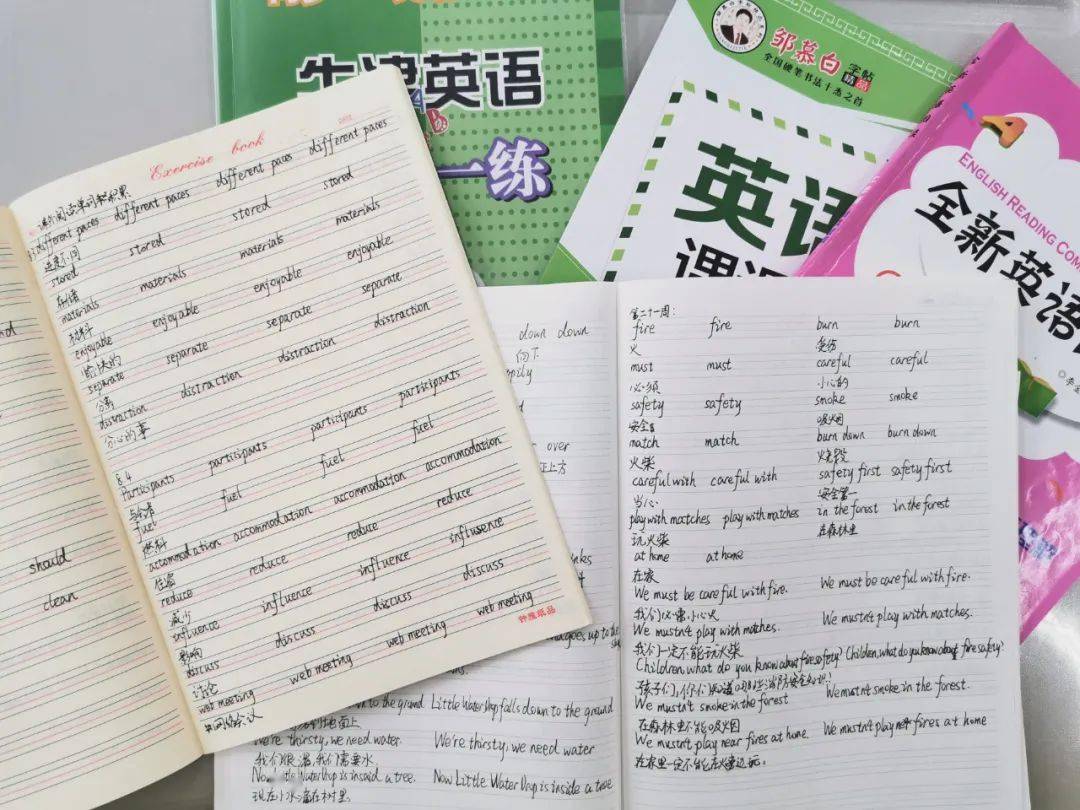 牛津英语
一练
邹慕白
字帖
精品
全国硬笔书法十杰之首
英语
4
ENGLISH READING COM
全新英语
Exercise book
different paces different paces different paces different paces
进度不同
stored stored stored stored
存储
materials materials materials materials
材料
enjoyable enjoyable enjoyable enjoyable
愉快的
separate separate separate separate
分离
distraction distraction distraction distraction
分心的事
8.4
Participants participants participants participants
参与者
fuel fuel fuel fuel
燃料
accommodation accommodation accommodation accommodation
住宿
reduce reduce reduce reduce
减少
influence influence influence influsence
影响
discuss discuss discuss discuss
讨论
web meeting web meeting web meeting web meeting
钟胜纸品
should
clean
down down
向下
over
正上方
to the ground Little Water Drop falls down to the ground
地面上
We're thirsty, we need water. We're thirsty, we need water
我们很渴我们需要水
Now Little Water Drop is insaid a tree. Now Little Water Drop is inside a tree
现在小水滴在树里
第二十一周:
fire fire burn burn
火
must must careful careful
必须 小心的
safety safety smoke smoke
安全 吸烟
match match burn down burn down
火柴 烧毁
careful with careful with safety first safety first
当心 安全第一
play with matches play with matches in the forest in the forest
玩火柴 在森林里
at home at home
在家
We must be careful with fire. We must be careful with fire.
我们必需小心火
We mustn't play with matches. We mustn't play with matches.
我们一定不能玩火柴
Children, what do you know about fire safety? Children, what do you know about fire safety?
孩子们,你们知道哪些消防安全知识?
We mustn't smoke in the forest We mustn't smoke in the forest.
在森林里不能吸烟
We mustn't play near fires at home. We mustn't play near fires at home